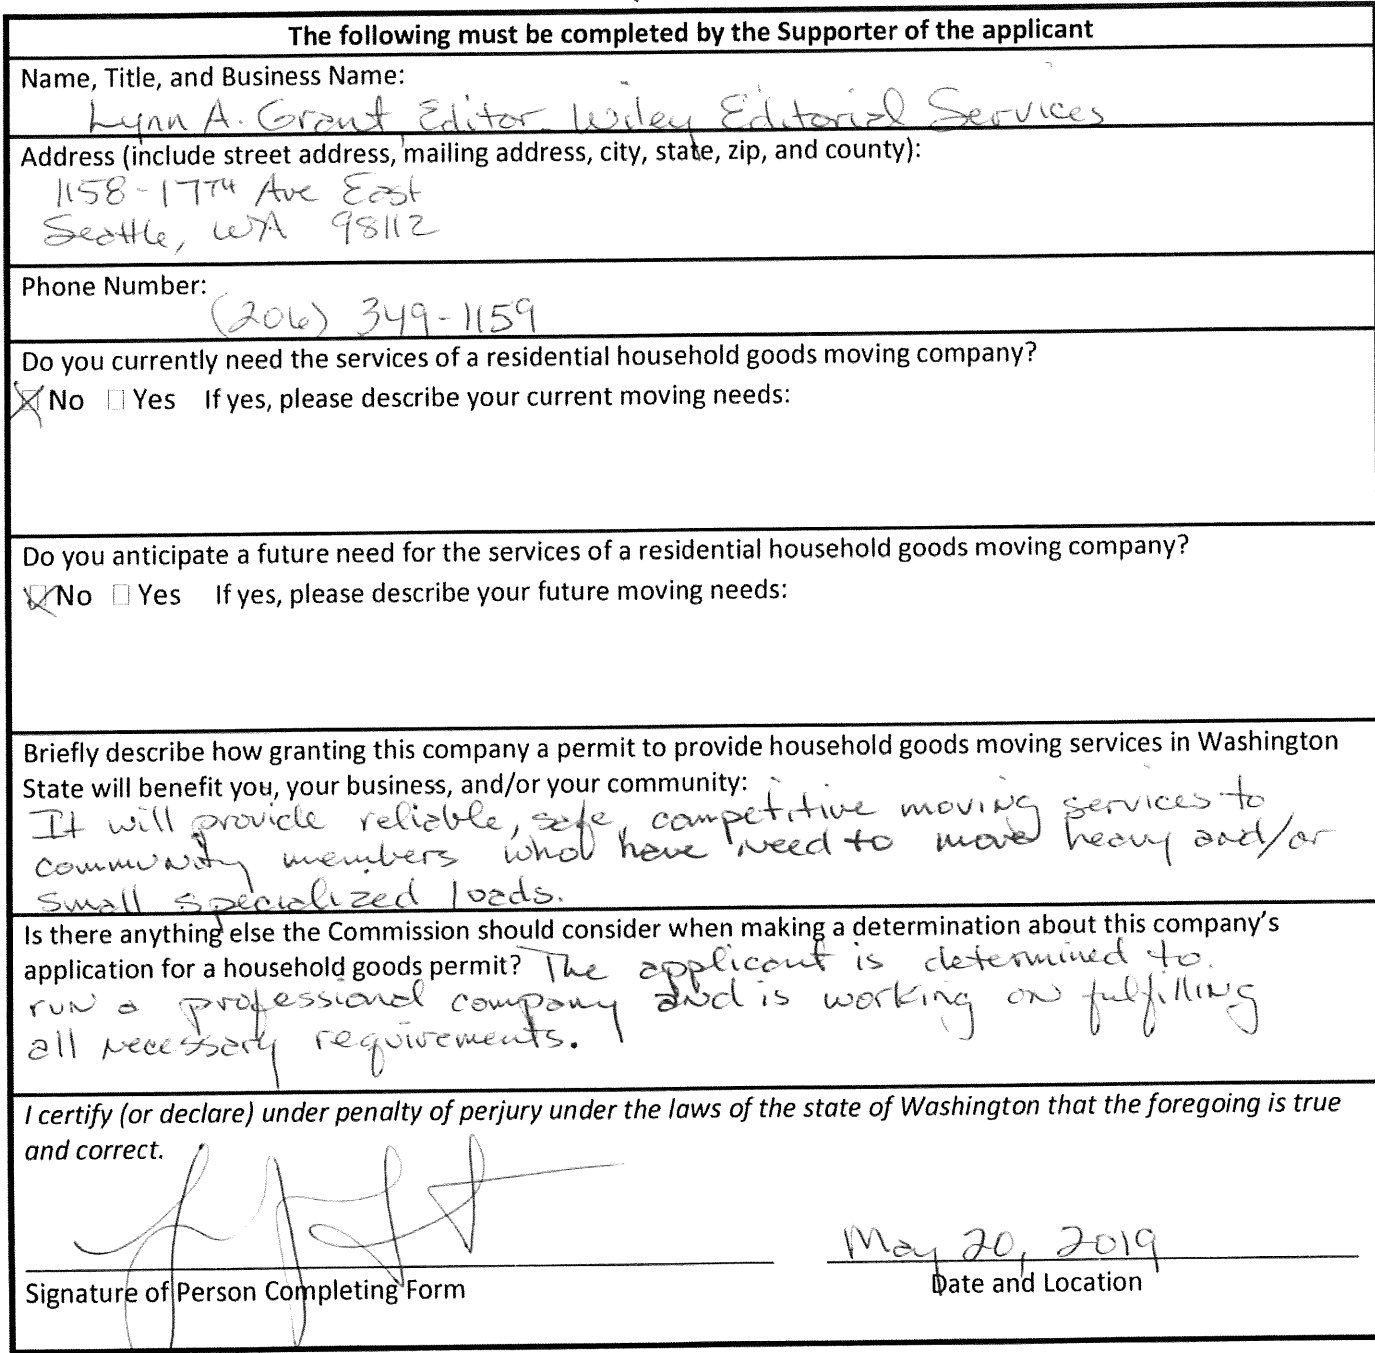 The following must be completed by the Supporter of the applicant
Name, Title, and Business Name:
Lynn A. Grant, Editor Wiley Editorial Services
Address (include street address, mailing address, city, state, zip, and county):
1158-17TH Ave East
Seattle, WA 98112
Phone Number:
(206) 349-1159
Do you currently need the services of a residential household goods moving company?
No Yes If yes, please describe your current moving needs:
Do you anticipate a future need for the services of a residential household goods moving company?
No Yes If yes, please describe your future moving needs:
Briefly describe how granting this company a permit to provide household goods moving services in Washington
State will benefit you, your business, and/or your community:
It will provide reliable, safe, competitive moving services to
community members who have need to move heavy and/or
small specialized loads.
Is there anything else the Commission should consider when making a determination about this company's
application for a household goods permit? The applicant is determined to
run a professional company and is working on fulfilling
all necessary requirements.
I certify (or declare) under penalty of perjury under the laws of the state of Washington that the foregoing is true
and correct.
May 20, 2019
Signature of Person Completing Form Date and Location